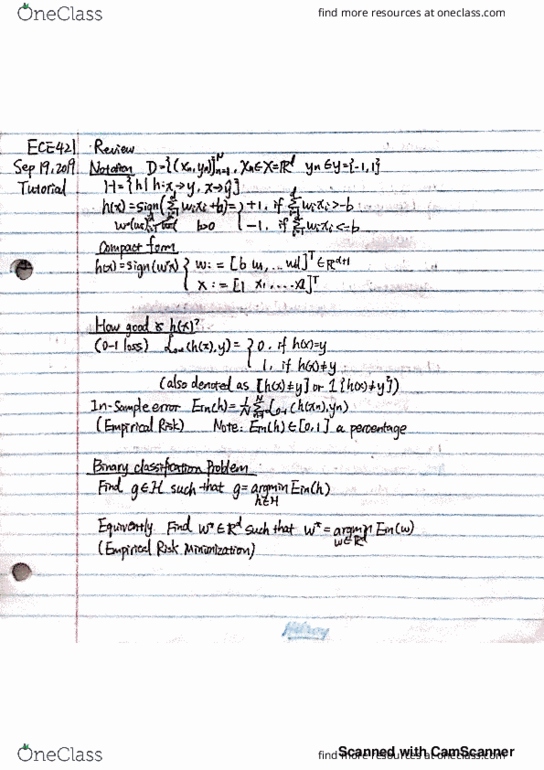 OneClass
find more resources at oneclass.com
ECE421 Review
Sep 19, 2019 Notation D={(xn, yn)}ᴺn=1, xn∈X=ℝᵈ yn∈y={-1,1}
Tutorial H={h| h:x→y, x→y}
h(x)=sign(Σᵈi=1 wixi+b)= {+1, if Σᵈi=1 wixi>-b
b>0 -1, if Σᵈi=1 wixi<=-b
Compact form
h(x)=sign(wᵀx) { w:=[b w1 ... wd]ᵀ∈ℝᵈ⁺¹
x:=[1 x1, ... xd]ᵀ
How good is h(x)?
(0-1 loss) L0-1(h(x),y)= {0, if h(x)=y
1, if h(x)≠y
(also denoted as [h(x)≠y] or 1{h(x)≠y})
In-Sample error Ein(h)=1/N Σᴺn=1 L0-1(h(xn),yn)
(Empirical Risk) Note: Ein(h)∈[0,1] a percentage
Binary classification Problem
Find g∈H such that g=argmin Ein(h)
h∈H
Equivently Find w*∈ℝᵈ such that w*=argmin Ein(w)
w∈ℝᵈ
(Empirical Risk Minimization)
Scanned with CamScanner
OneClass
find more resources at oneclass.com